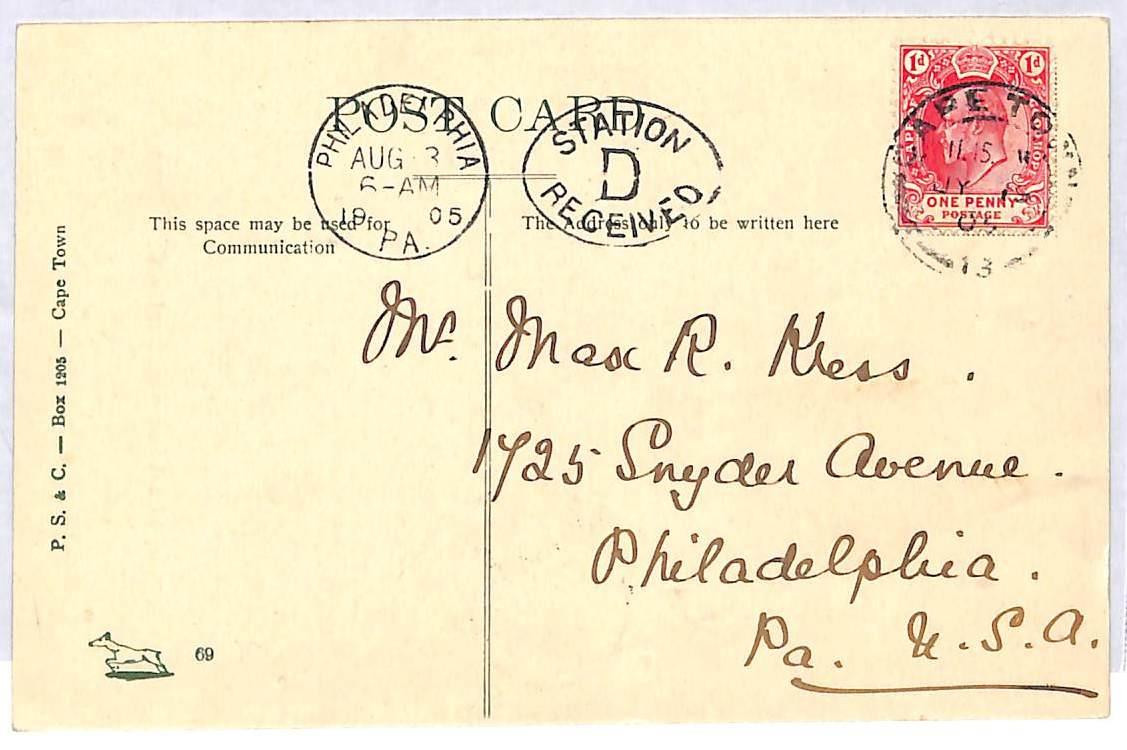 POST CARD
PHILADELPHIA
AUG 3
6-AM
19 05
PA.
STATION
D
RECEIVED
1d 1d
CAPE TO
11.15
ONE PENNY
POSTAGE
13
This space may be used for
Communication
The Address only to be written here
P. S. & C. — Box 1205 — Cape Town
Mr. Max R. Kress.
1725 Snyder Avenue.
Philadelphia.
Pa. U.S.A.
69